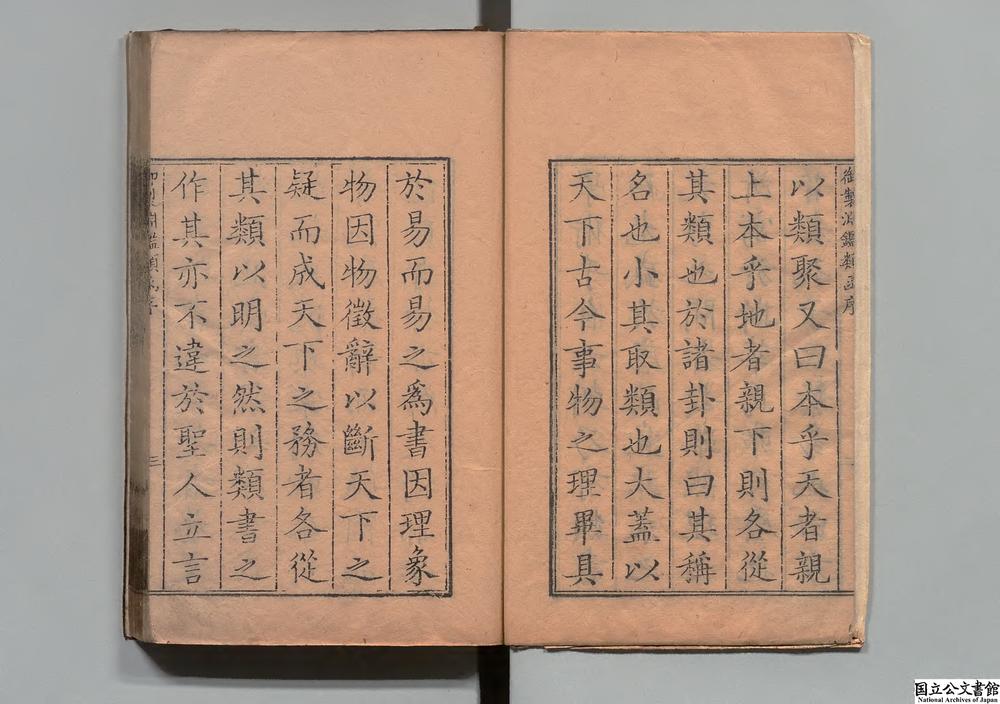 御製淵鑑類函序
以類聚又曰本乎天者親
上本乎地者親下則各從
其類也於諸卦則曰其稱
名也小其取類也大蓋以
天下古今事物之理畢具
於易而易之爲書因理象
物因物徵辭以斷天下之
疑而成天下之務者各從
其類以明之然則類書之
作其亦不違於聖人立言
三
国立公文書館
National Archives of Japan